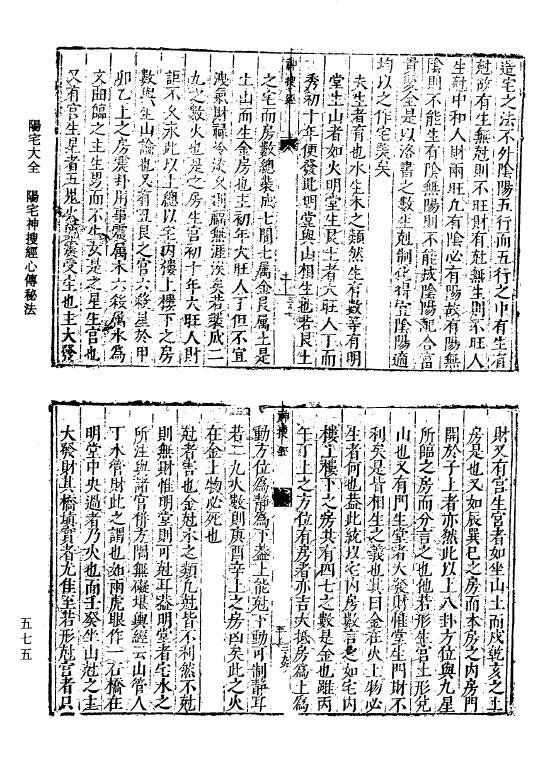 造宅之法不外陰陽五行而五行之中有生有
尅故有生無尅則不旺財有尅無生則不旺人
生尅中和人財兩旺凡有陰必有陽故有陽無
陰則不能生有陰無陽則不能成陰陽配合富
貴雙全是以洛書之數生尅制化得宜陰陽適
均以之作宅奚矣
夫生者育也水生木之類然生有數等有明
堂生山者如火明堂生艮土者大旺人丁而
秀初十年便發此明堂與山相生也若艮土
神搜經
之宅而房數總葉成七間七屬金艮属土是
土山而生金房也主初年大旺人丁但不宜
洩氣財祿冷淡久則禍無涯矣若葉成二
九之數火也是之房生宮初十年大旺人財
詎不久永此以上總以宅內樓上樓下之房
數與生山論也又有丑艮之宮六殺星於甲
卯乙上之房震卦用事震屬木六殺属水為
文曲臨之主生男而不生女是之星生宮也
又有宮生星者五鬼火受生也主大發
財又有宮生宮者如坐山土而戌乾亥之土
房是也又如辰巽巳之房而本房之內房門
開於子上者亦然此以上八卦方位與九星
所臨之房而分言之也他若形生宮土形兌
山也又有門生堂者大發財惟堂生門財不
利矣是皆相生之義也其曰金在火上物必
生者何也蓋此就以宅內房數言之如宅內
樓上樓下之房共有四七之數是金也雖丙
午丁上之方位有房者亦吉大抵房為上為
神搜經
動方位為靜為下蓋上能尅下動可制靜耳
若二九火數則庚酉辛上之房凶矣此之火
在金上物必死也
尅者害也金尅木之類凡尅皆不利然不尅
則無財惟明堂則可尅耳蓋明堂者宅水之
所注與諸宮併方隅無礙堪輿經云山管人
丁水管財此之謂也如兩虎眼作一石橋在
明堂中央過者乃火也而壬癸坐山尅之主
大發財其橋填實者尤佳至若形尅宮者只
陽宅大全　陽宅神搜經心傳秘法
五七五